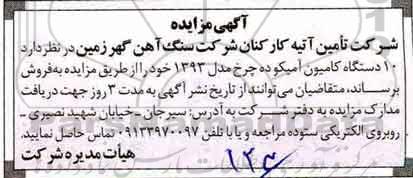 آگهی مزایده
شرکت تأمین آتیه کارکنان شرکت سنگ آهن گهر زمین در نظر دارد
۱۰ دستگاه کامیون آمیکو ده چرخ مدل ۱۳۹۳ خود را از طریق مزایده به فروش
برساند، متقاضیان می‌توانند از تاریخ نشر آگهی به مدت ۳ روز جهت دریافت
مدارک مزایده به دفتر شرکت به آدرس: سیرجان ـ خیابان شهید نصیری ـ
روبروی الکتریکی ستوده مراجعه و یا با تلفن ۰۹۱۳۳۹۷۰۰۹۷ تماس حاصل نمایند.
هیأت مدیره شرکت